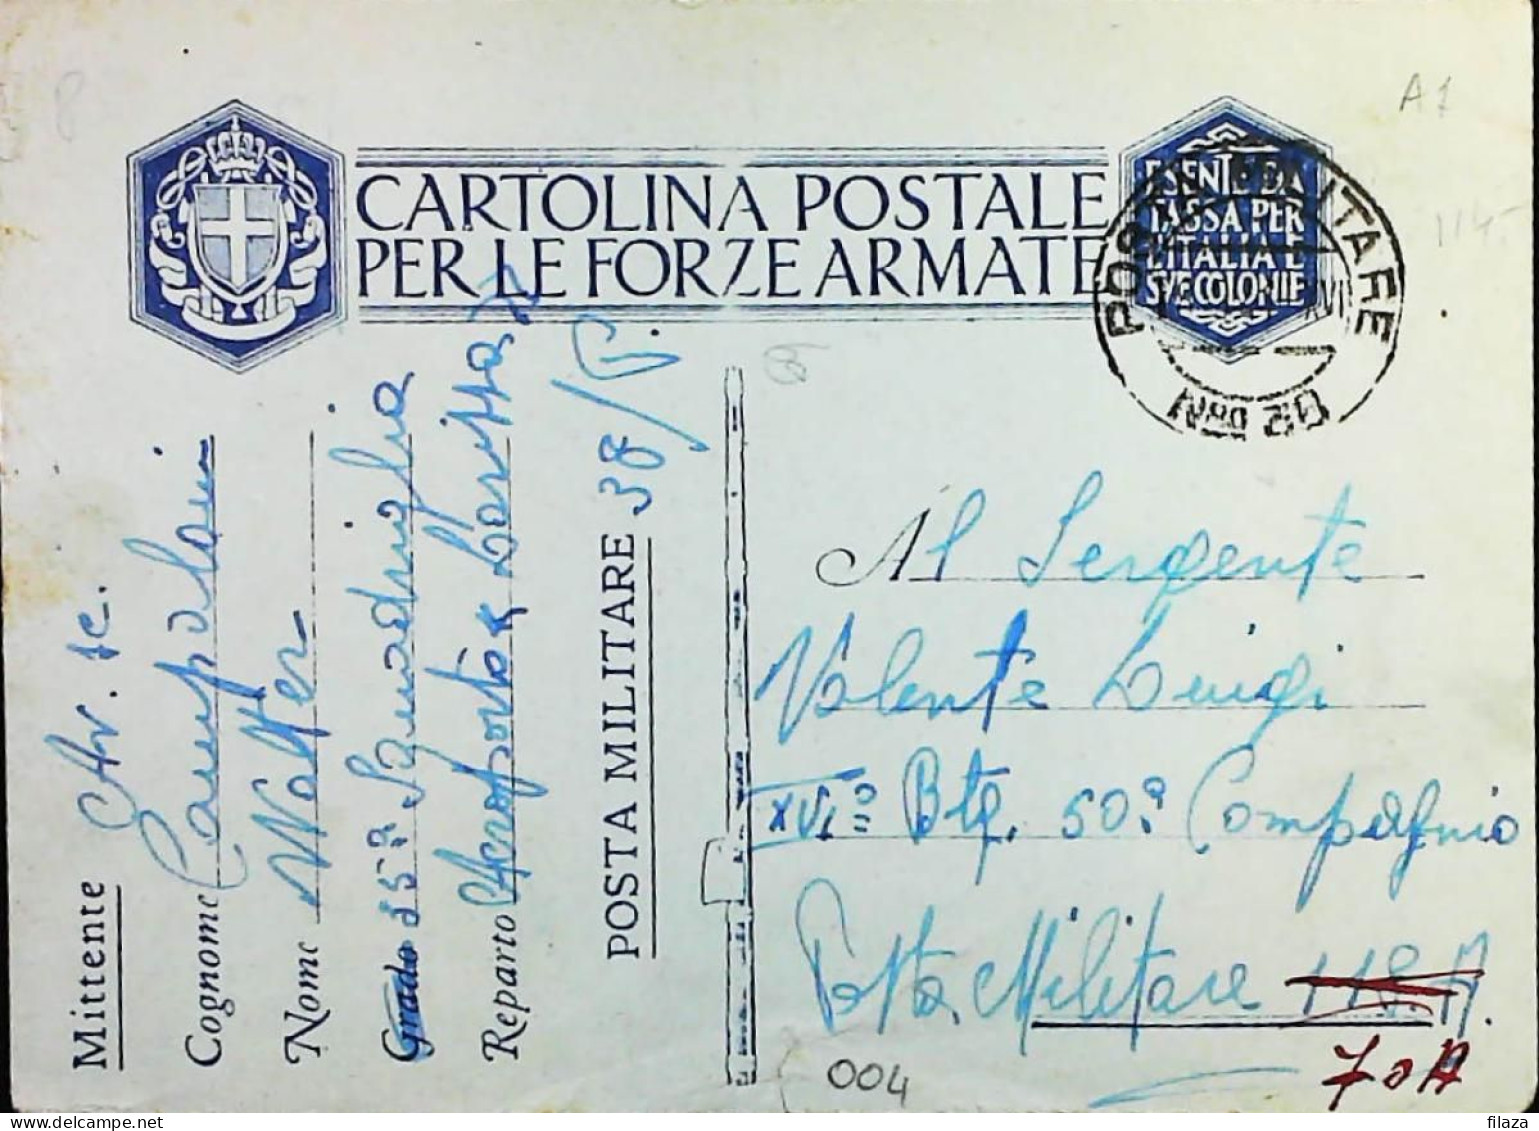 A1
114
CARTOLINA POSTALE
PER LE FORZE ARMATE
ESENTE DA
TASSA PER
L'ITALIA E
SVE COLONIE
POSTA MILITARE
Mittente Av. sc.
Cognome Campolani
Nome Walter
Grado 35ª Squadriglia
Reparto Aeroporto
POSTA MILITARE 38/P.
Al Sergente
Valente Luigi
XVIº Btg. 50ª Compagnia
Posta Militare 118.A.
70A
004
filaza